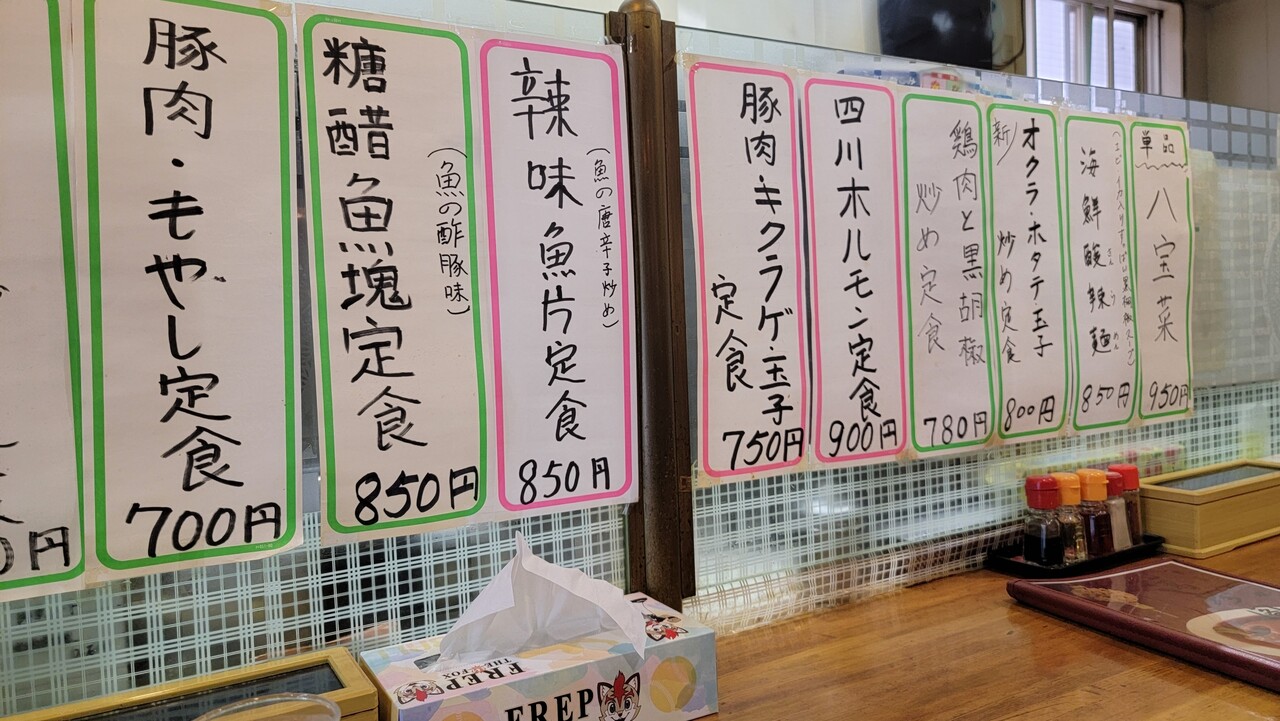 円
豚肉・もやし定食
700円
糖醋魚塊定食
(魚の酢豚味)
850円
辣味魚片定食
(魚の唐辛子炒め)
850円
豚肉・キクラゲ・玉子
定食
750円
四川ホルモン定食
900円
鶏肉と黒胡椒
炒め定食
780円
新/
オクラ・ホタテ・玉子
炒め定食
800円
海鮮酸辣麺
さんらめん
850円
単品
八宝菜
950円
FREP
THE FOX
FREP